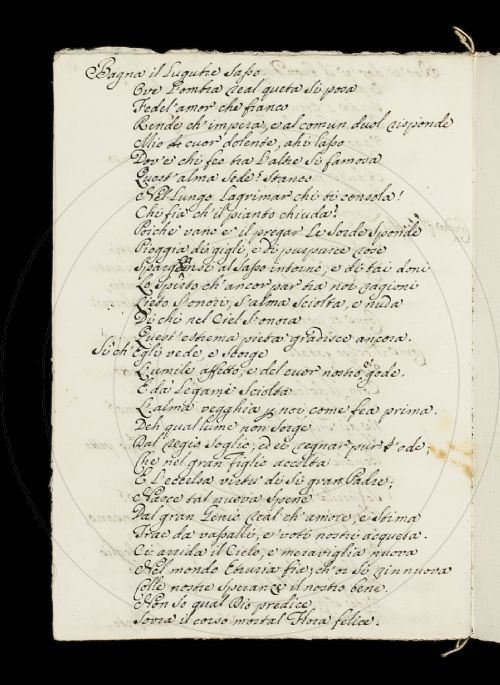 Bagna il Lugubre Sasso
Ove l'ombra Real queta si posa
Fedel' amor che fianco
Rende ch' impera, e al comun duol risponde
Mio cuor dolente, ahi lasso
Dov'è chi feo tra l'altre si famosa
Quest' alma Sede? Stanco
Nel Lungo Lagrimar chi ti consola!
Chi fia ch'il pianto chiuda?
Poichè vano è il pregar Le Sorde Sponde
Pioggia di gigli, e di purpuree rose
Spargansi al Sasso intorno, e di tai doni
Lo Spirto ch' ancor par tra noi ragioni
Lieto s'onori, s'alma Sciolta, e nuda
Di chi nel Ciel s'onora
Quest' estrema pietà gradisce ancora.
Sì ch' Egli vede, e Scorge
L'umile affetto, e del cuor nostro gode.
E da Legame Sciolta
L'alma vegghia p noi come fea prima.
Deh qual lume non Sorge
Dal Regio Soglio, ed ei regnar pur s' ode,
Che nel gran Figlio accolta
E l'eccelsa virtù di Si gran Padre;
Nasce tal nuova Spene
Dal gran Genio Real ch' amore, e Stima
Trae da vassalli, e voti nostri acqueta.
Ci arrida il Cielo, e meraviglia nuova
Nel mondo Etruria fia; ch'or si rinnuova
Colle nostre Speranze il nostro bene.
Non so qual Dio predice
Sovra il corso mortal Flora felice.